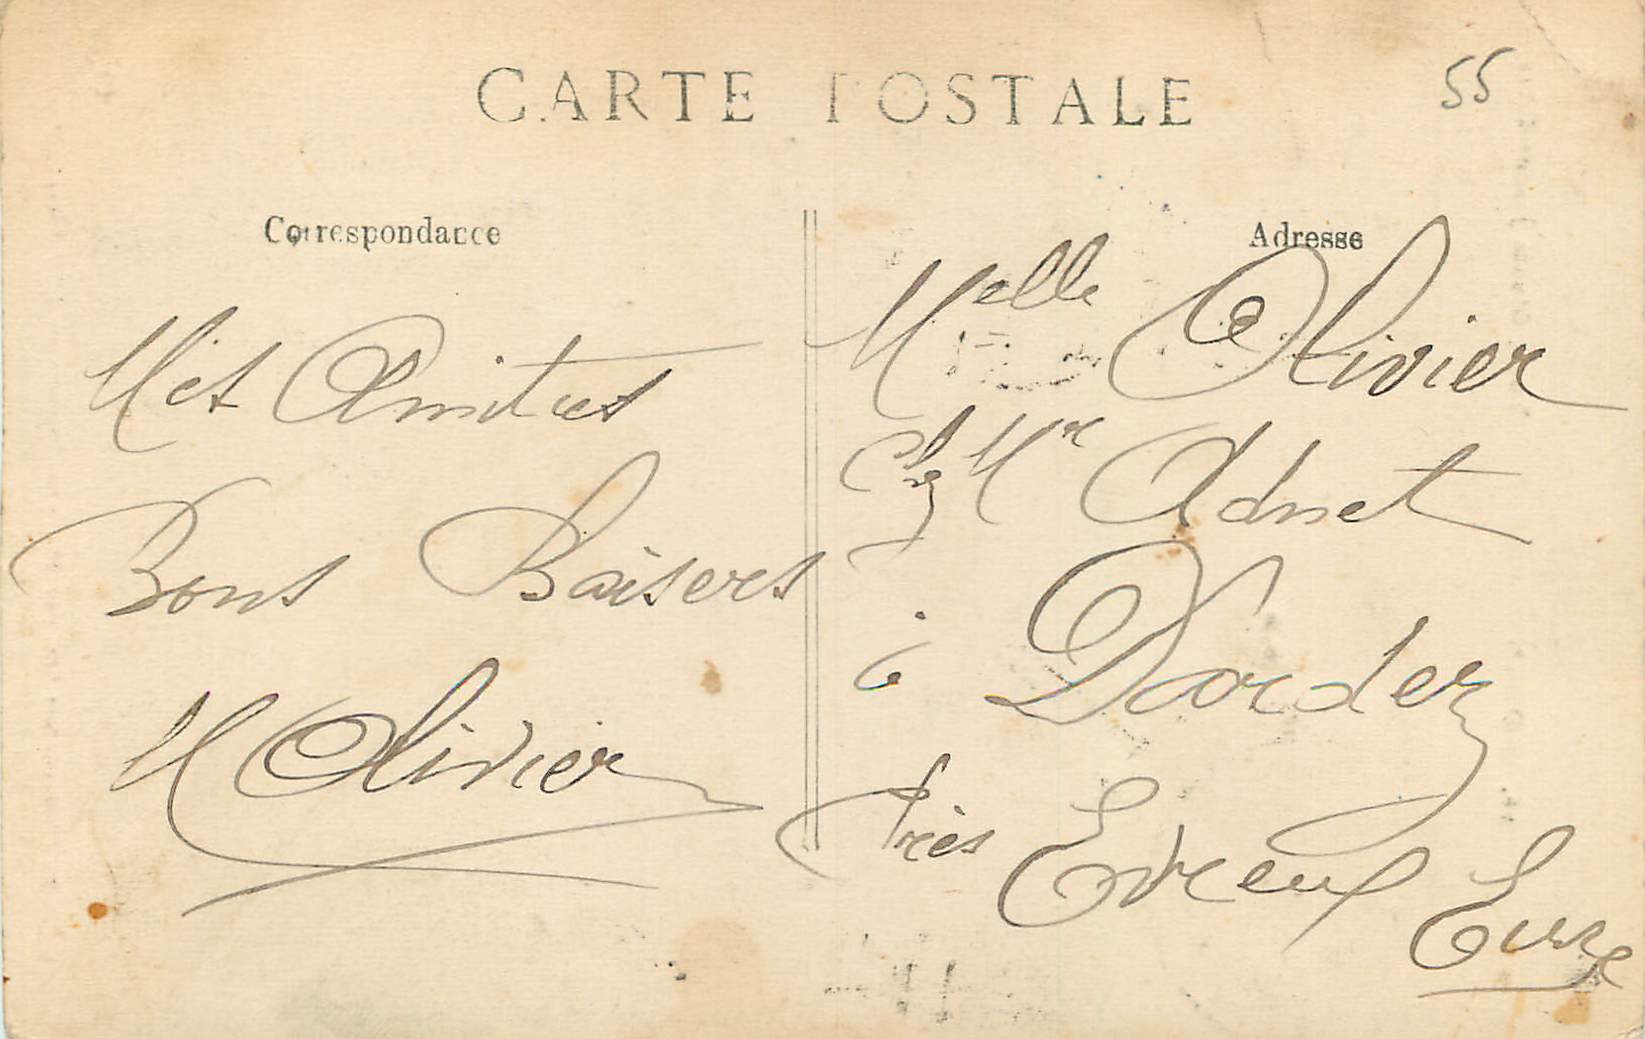 CARTE POSTALE
55
Correspondance
Adresse
Mes Amitiés
Bons Baisers
M Olivier
Melle Olivier
Chz Mr Adnet
à Dardez
Près Evreux
Eure